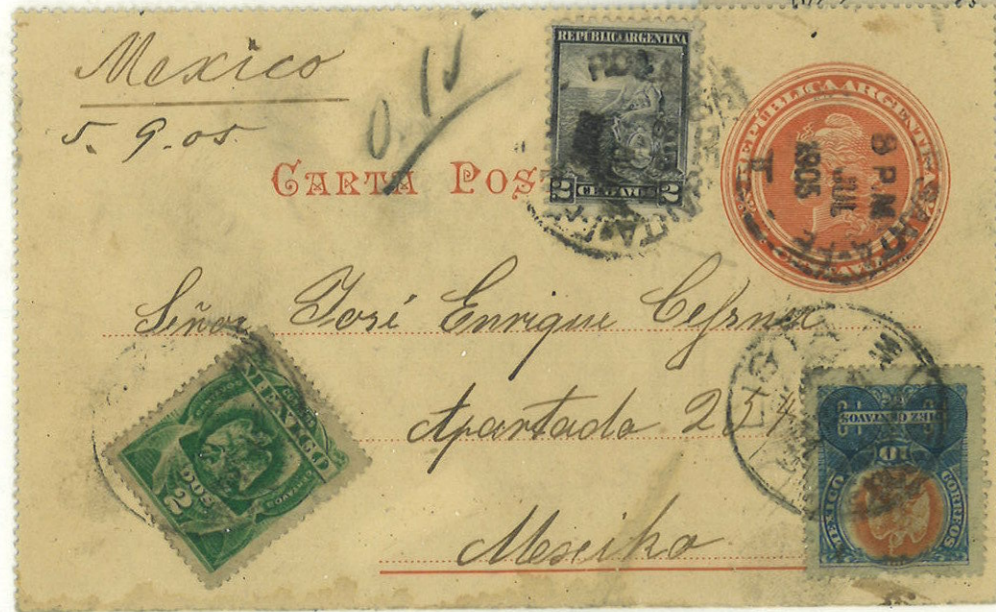 Mexico
5. 9. 05
0.15
CARTA POS
REPUBLICA ARGENTINA
2 CENTAVOS 2
REPÚBLICA ARGENTINA
SANTA-FE
8 P.M
JUL
1905
Señor José Enrique
Apartado 254
Mexiko
MEXICO
DOS
2
CENTAVOS
10
DIEZ CENTAVOS
MEXICO CORREOS